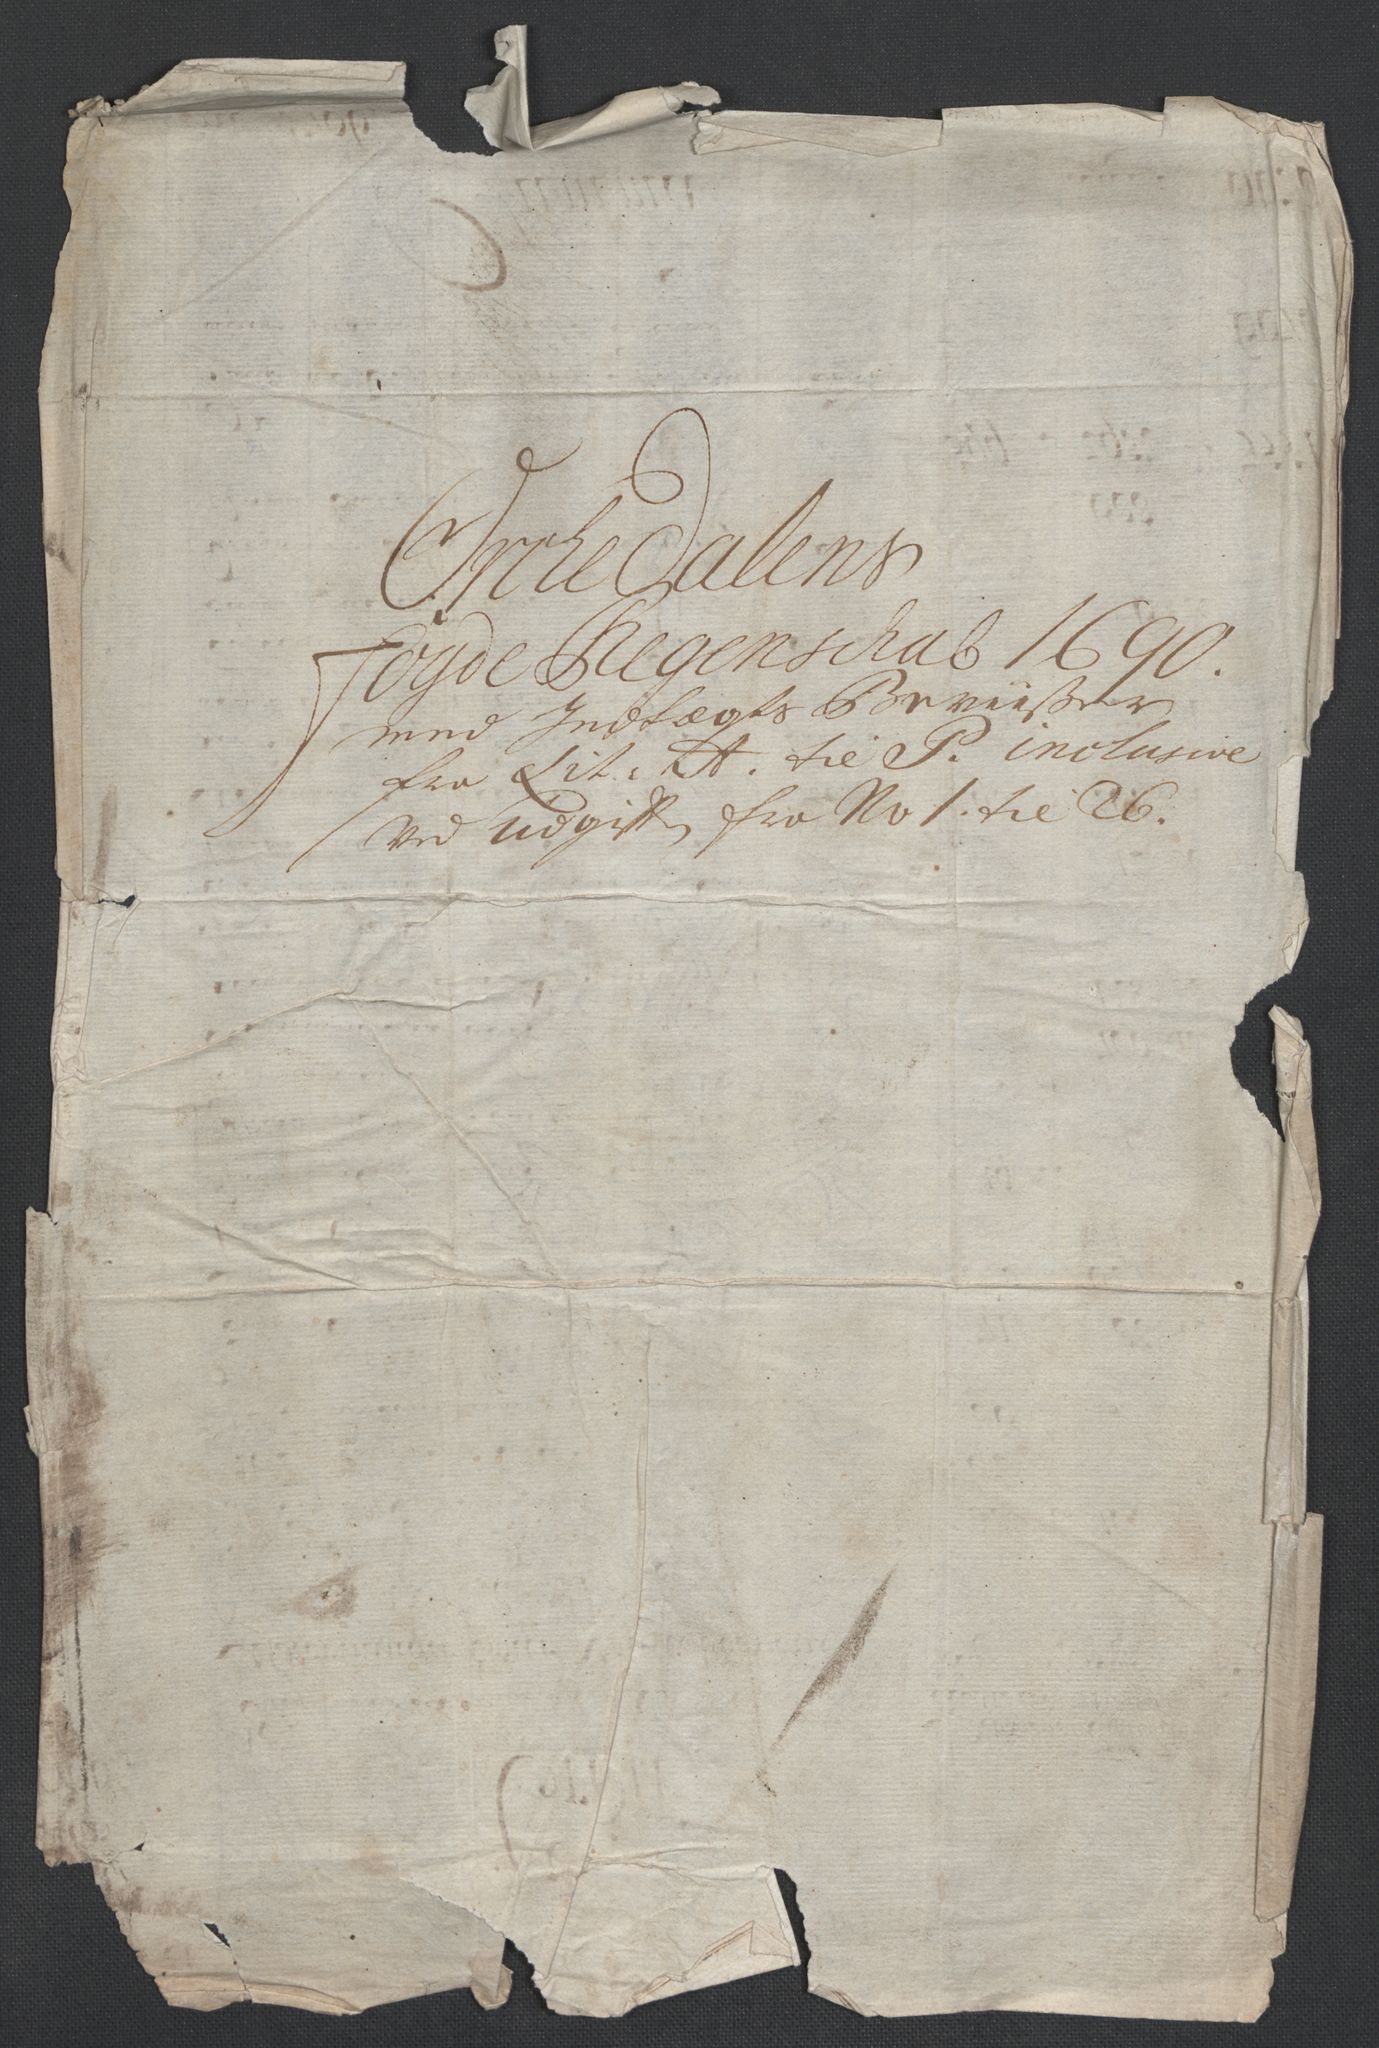 OrcheDalens
Fogde Regenschab 1690.
med Indtægts Beviißer
fra Lit. A. til P. inclusive
ved Udgifft fra No 1. til 26.